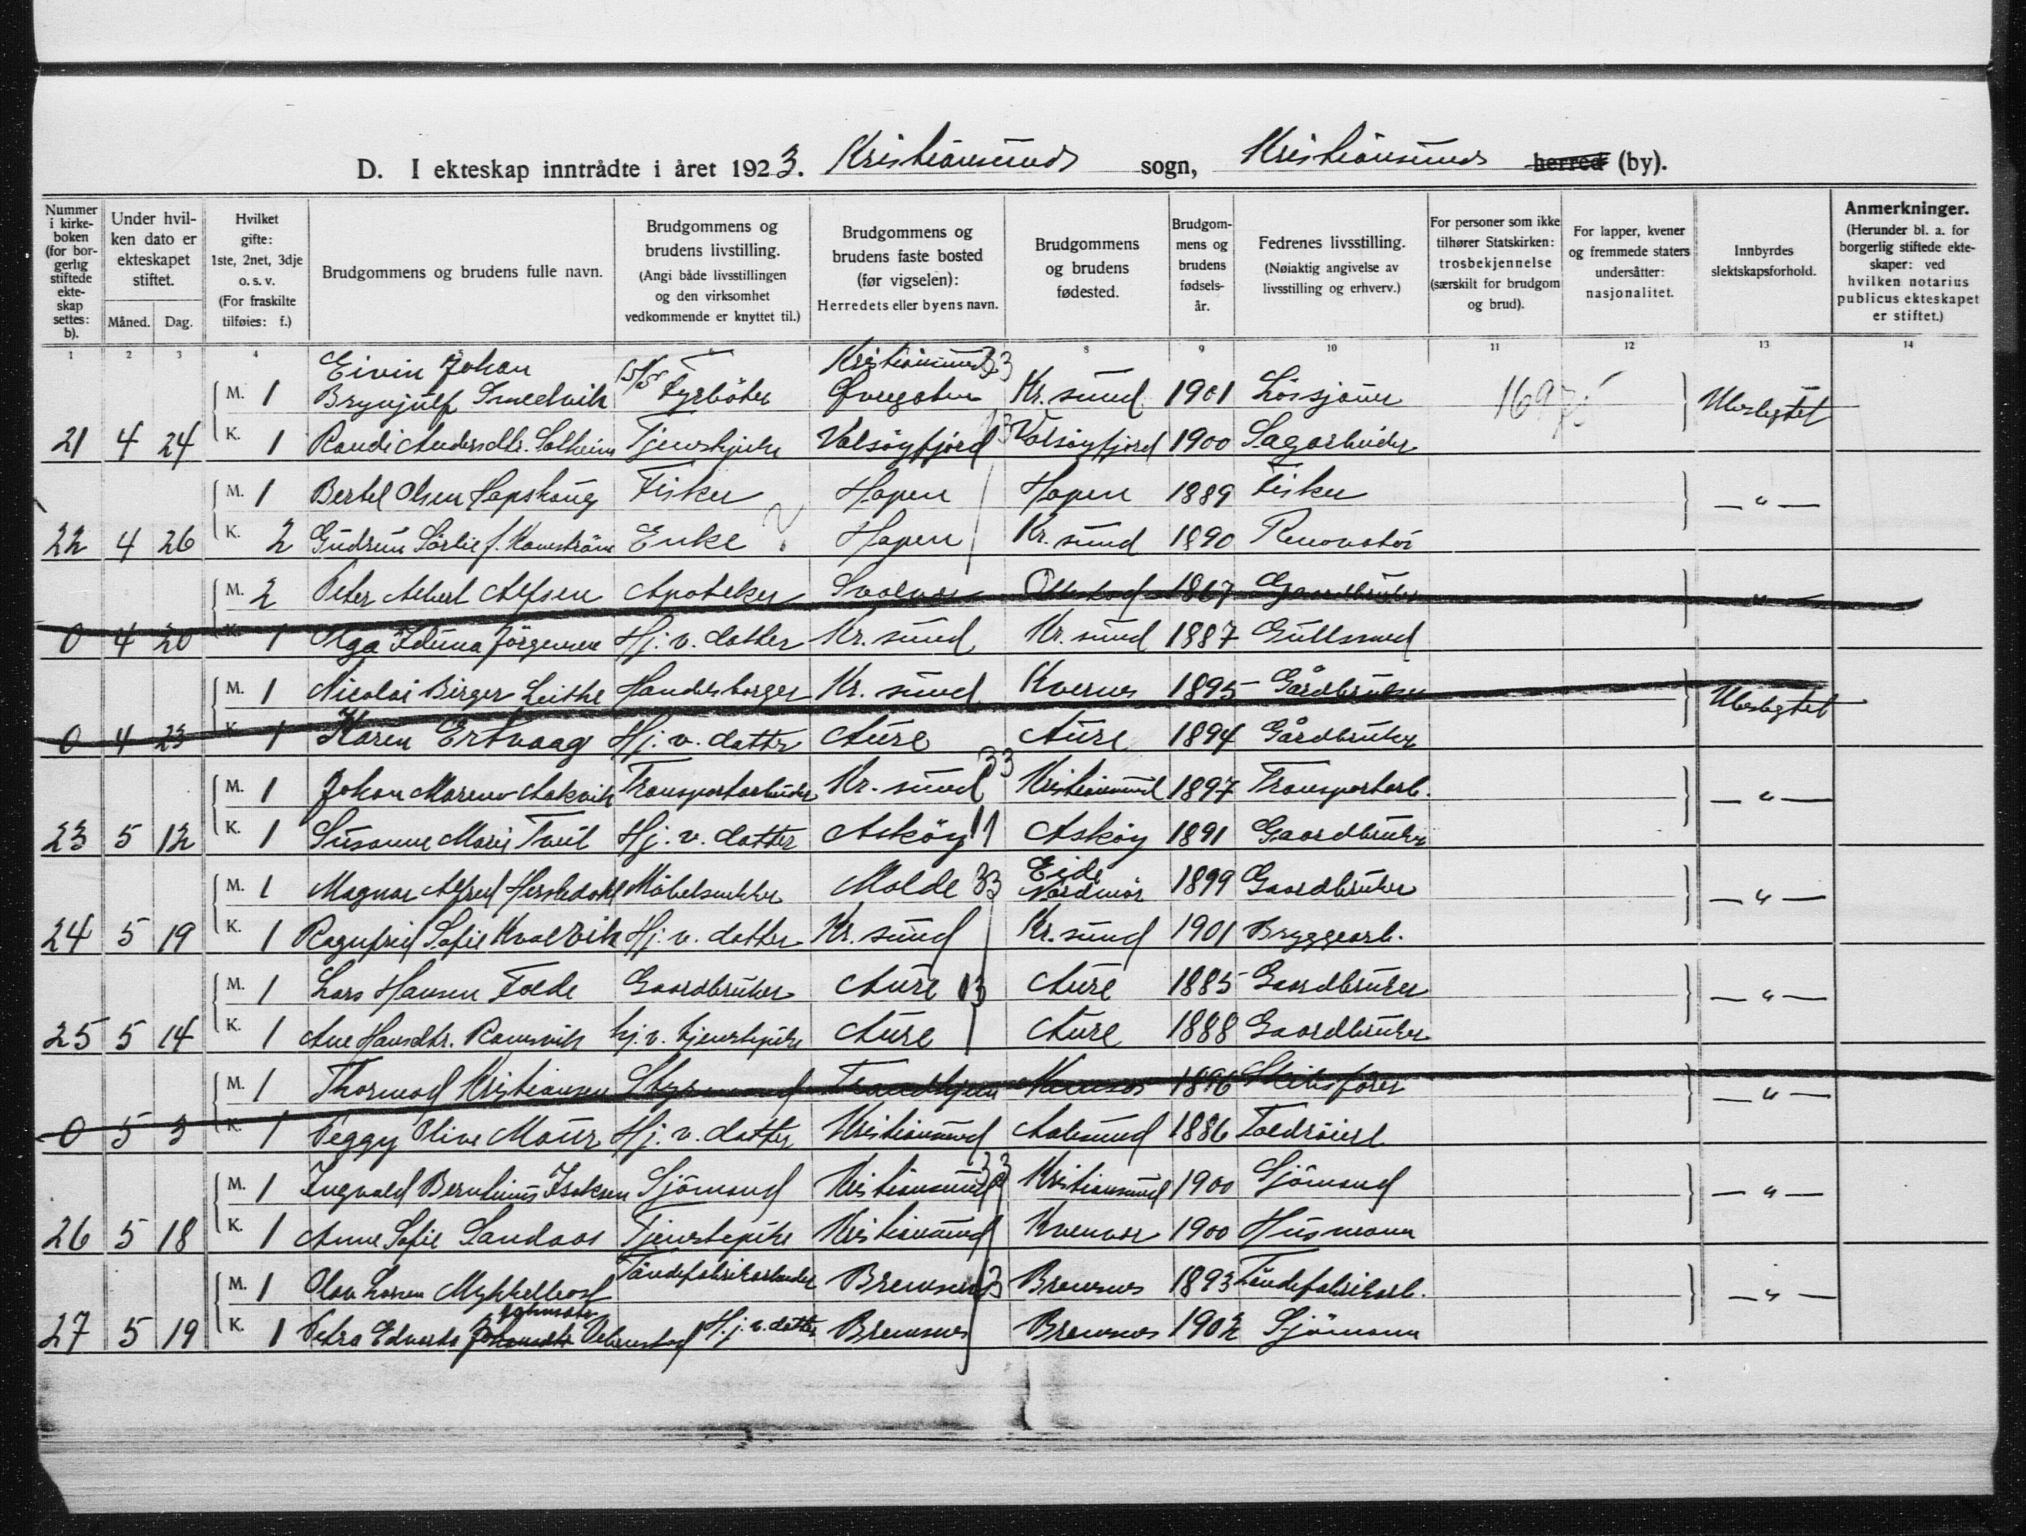 D. I ekteskap inntrådte i året 1923. Kristiansunds sogn, Kristiansunds herred (by).
Nummer i kirkeboken (for borgerlig stiftede ekteskap settes: b).
Under hvilken dato er ekteskapet stiftet.
Måned. Dag.
Hvilket gifte: 1ste, 2net, 3dje o. s. v. (For fraskilte tilføies: f.)
Brudgommens og brudens fulle navn.
Brudgommens og brudens livstilling. (Angi både livsstillingen og den virksomhet vedkommende er knyttet til.)
Brudgommens og brudens faste bosted (før vigselen): Herredets eller byens navn.
Brudgommens og brudens fødested.
Brudgommens og brudens fødselsår.
Fedrenes livsstilling. (Nøiaktig angivelse av livsstilling og erhverv.)
For personer som ikke tilhører Statskirken: trosbekjennelse (særskilt for brudgom og brud).
For lapper, kvener og fremmede staters undersåtter: nasjonalitet.
Innbyrdes slektskapsforhold.
Anmerkninger. (Herunder bl. a. for borgerlig stiftede ekteskaper: ved hvilken notarius publicus ekteskapet er stiftet.)
1 2 3 4 8 9 10 11 12 13 14
Eivin Johan Kristiansund 33
M. 1 Brynjulf Smedvik S/S Fyrbøter Kr. sund 1901 Løssjauer Ubeslegtet
21 4 24 K. 1 Randi Andersdtr. Solheim Tjenestpike Valsøyfjord Valsøyfjord 1900 Sagarbeider
M. 1 Bertel Olsen Hapshaug Fisker Hopen Hopen 1889 Fisker — " —
22 4 26 K. 2 Gudrun Sørlie f. Enke Hopen Kr. sund 1890 Renovatør
M. 2 Peter Albert Alfsen Apoteker Svolvær 1867 Gaardbruker "
0 4 20 K. 1 Olga Iduna Jörgensen Hj. v. datter Kr. sund Kr. sund 1887 Gullsmed
M. 1 Nicolai Birger Leithe Handelsborger Kr. sund Kvernes 1895 Gårdbruker Ubeslegtet
0 4 23 K. 1 Karen Ertvaag Hj. v. datter Aure Aure 1894 Gårdbruker
M. 1 Johan Aakvik Transportarbeider Kr. sund 33 Kristiansund 1897 Transportarb. — " —
23 5 12 K. 1 Susanne Marie Tveit Hj. v. datter Askøy 11 Askøy 1891 Gaardbruker
M. 1 Magnar Alfred Hersledahl Møbelsnekker Molde 33 Eide Nordmør 1899 Gaardbruker — " —
24 5 19 K. 1 Ragnfrid Sofie Kvalvik Hj. v. datter Kr. sund Kr. sund 1901 Bryggearb.
M. 1 Lars Hansen Folde Gaardbruker Aure 13 Aure 1885 Gaardbruker — " —
25 5 14 K. 1 Ane Hansdtr. Ramsvik hj. v. tjenestepike Aure Aure 1888 Gaardbruker
M. 1 Thormod Kristiansen Styrmand Trondhjem 1896 Skibsfører — " —
0 5 3 K. 1 Peggy Olive Maur Hj. v. datter Kristiansund Aalesund 1886 Toldrøiert
M. 1 Ingvald Berntinus Isaksen Sjömand Kristiansund 33 Kristiansund 1900 Sjömand — " —
26 5 18 K. 1 Anne Sofie Sandaas Tjenestepike Kristiansund Kvenvær 1900 Husmann
M. 1 Olav Larsen Myklebost Töndefabrikarbeider Bremsnes 13 Bremsnes 1893 Töndefabrikarb. — " —
27 5 19 K. 1 Petra Edvarda Hj. v. datter Bremsnes Bremsnes 1902 Sjömann